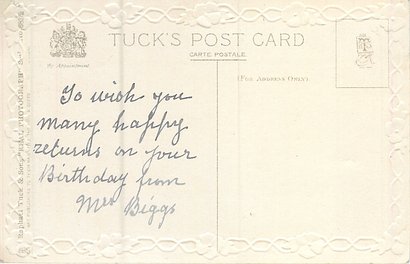 TUCK'S POST CARD
CARTE POSTALE
By Appointment
(FOR ADDRESS ONLY)
To wish you
many happy
returns on your
Birthday from
Mrs Biggs
Raphael Tuck & Sons' "REAL PHOTOGRAPH"